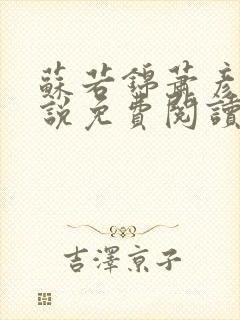 蘇若錦蕭彥
說免費閱讀
吉澤京子